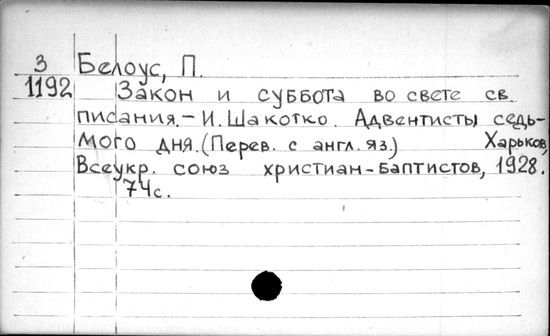 3 Белоус, П.
1192 Закон и суббота во свете св.
писания.-И. Шакотко. Адвентисты седь-
мого дня. (Перев. с англ. яз.) Харьков,
Всеукр. союз христиан-баптистов, 1928.
74с.